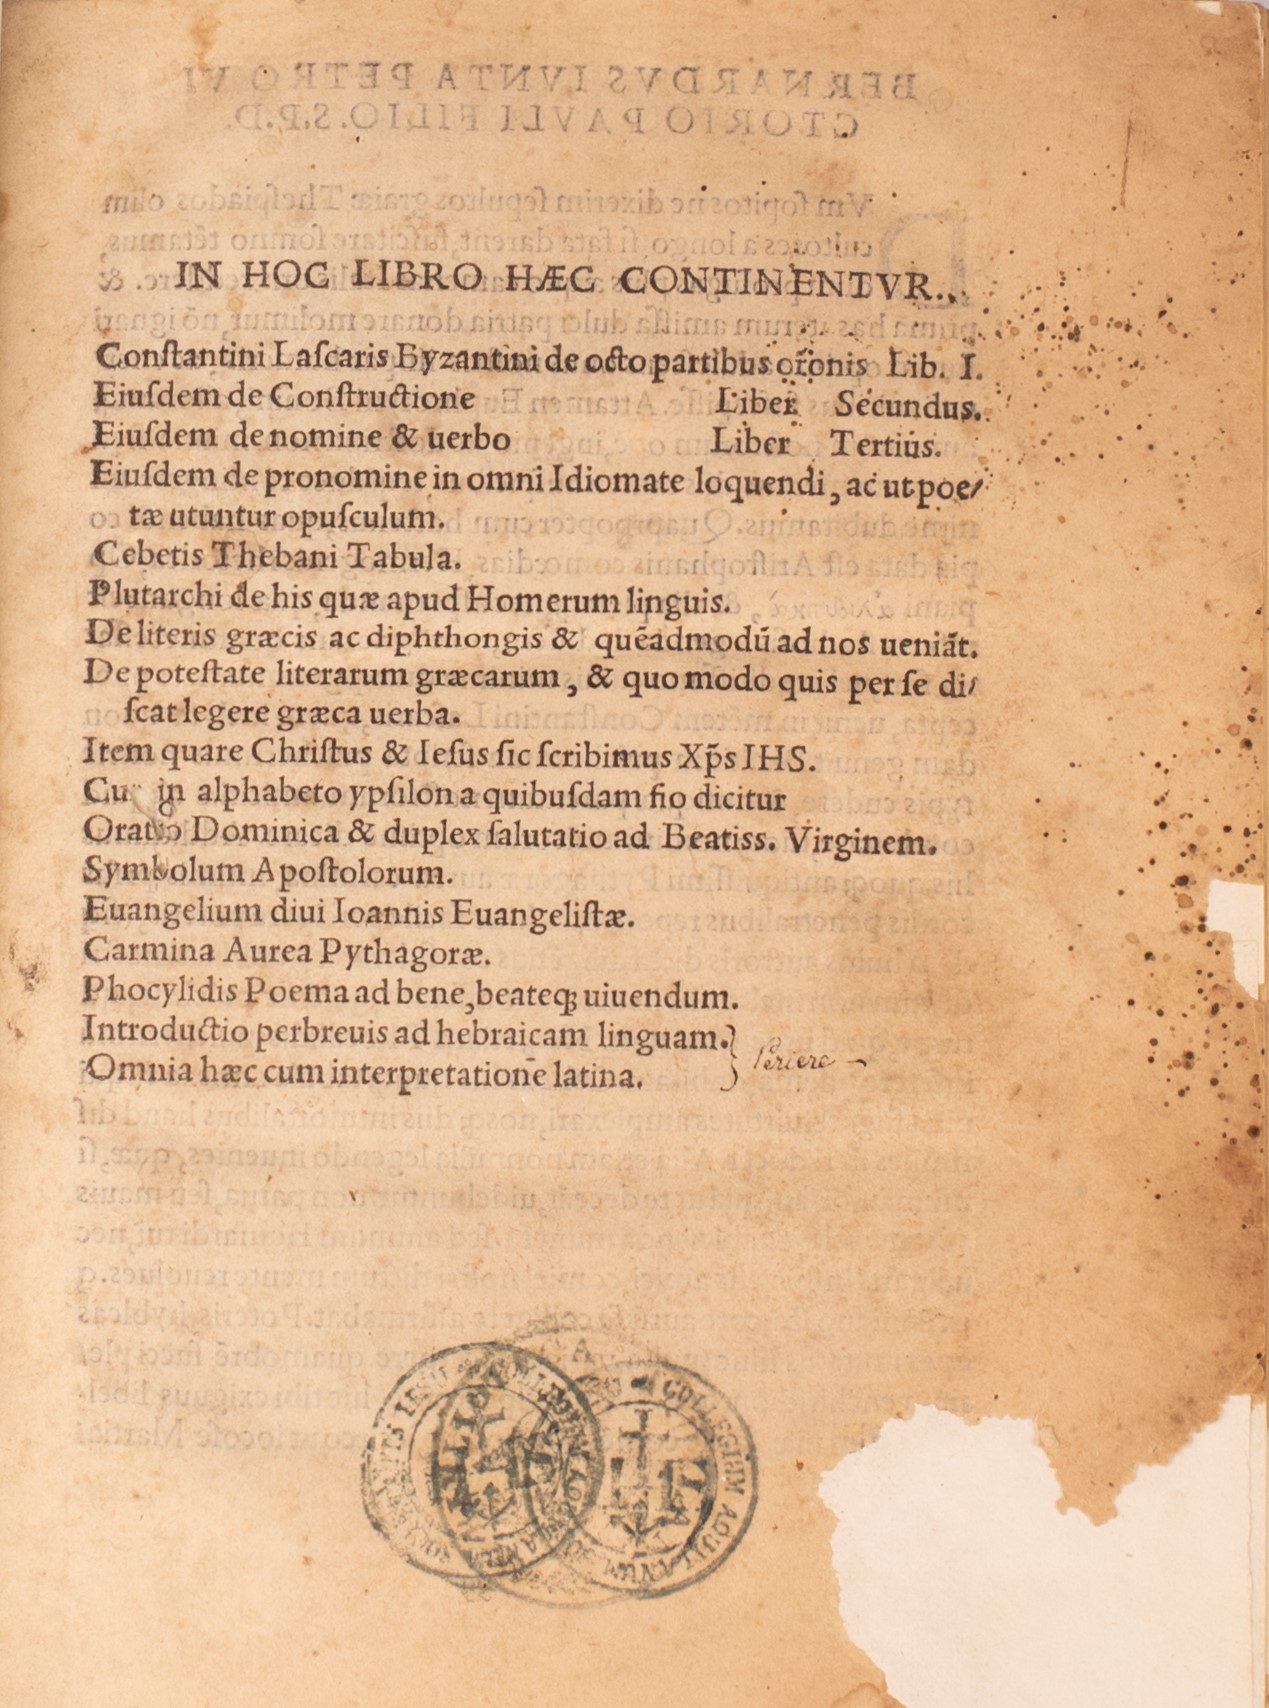 IN HOC LIBRO HÆC CONTINENTVR.
Conſtantini Laſcaris Byzantini de octo partibus or̃onis Lib. I.
Eiuſdem de Conſtructione Liber Secundus.
Eiuſdem de nomine & uerbo Liber Tertius.
Eiuſdem de pronomine in omni Idiomate loquendi, ac ut poe/
tæ utuntur opuſculum.
Cebetis Thebani Tabula.
Plutarchi de his quæ apud Homerum linguis.
De literis græcis ac diphthongis & quẽadmodũ ad nos ueniãt.
De poteſtate literarum græcarum, & quo modo quis per ſe di/
ſcat legere græca uerba.
Item quare Chriſtus & Ieſus ſic ſcribimus Xp̃s IHS.
in alphabeto ypſilon a quibuſdam fio dicitur
Oratio Dominica & duplex ſalutatio ad Beatiss. Virginem.
Symbolum Apoſtolorum.
Euangelium diui Ioannis Euangeliſtæ.
Carmina Aurea Pythagoræ.
Phocylidis Poema ad bene, beateqꝫ uiuendum.
Introductio perbreuis ad hebraicam linguam.
Omnia hæc cum interpretatione latina.
Periere
COLLEGIUM AQUILANUM